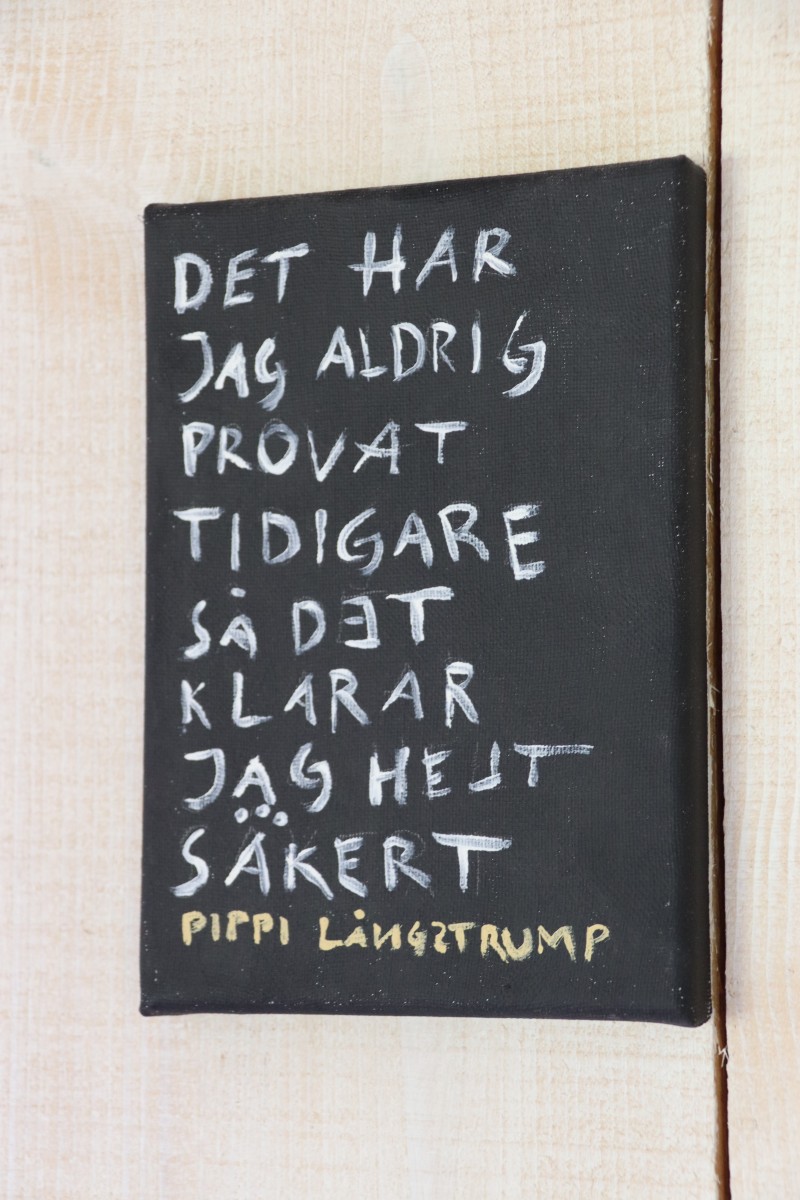 DET HAR
JAG ALDRIG
PROVAT
TIDIGARE
SÅ DET
KLARAR
JAG HELT
SÄKERT
PIPPI LÅNGSTRUMP